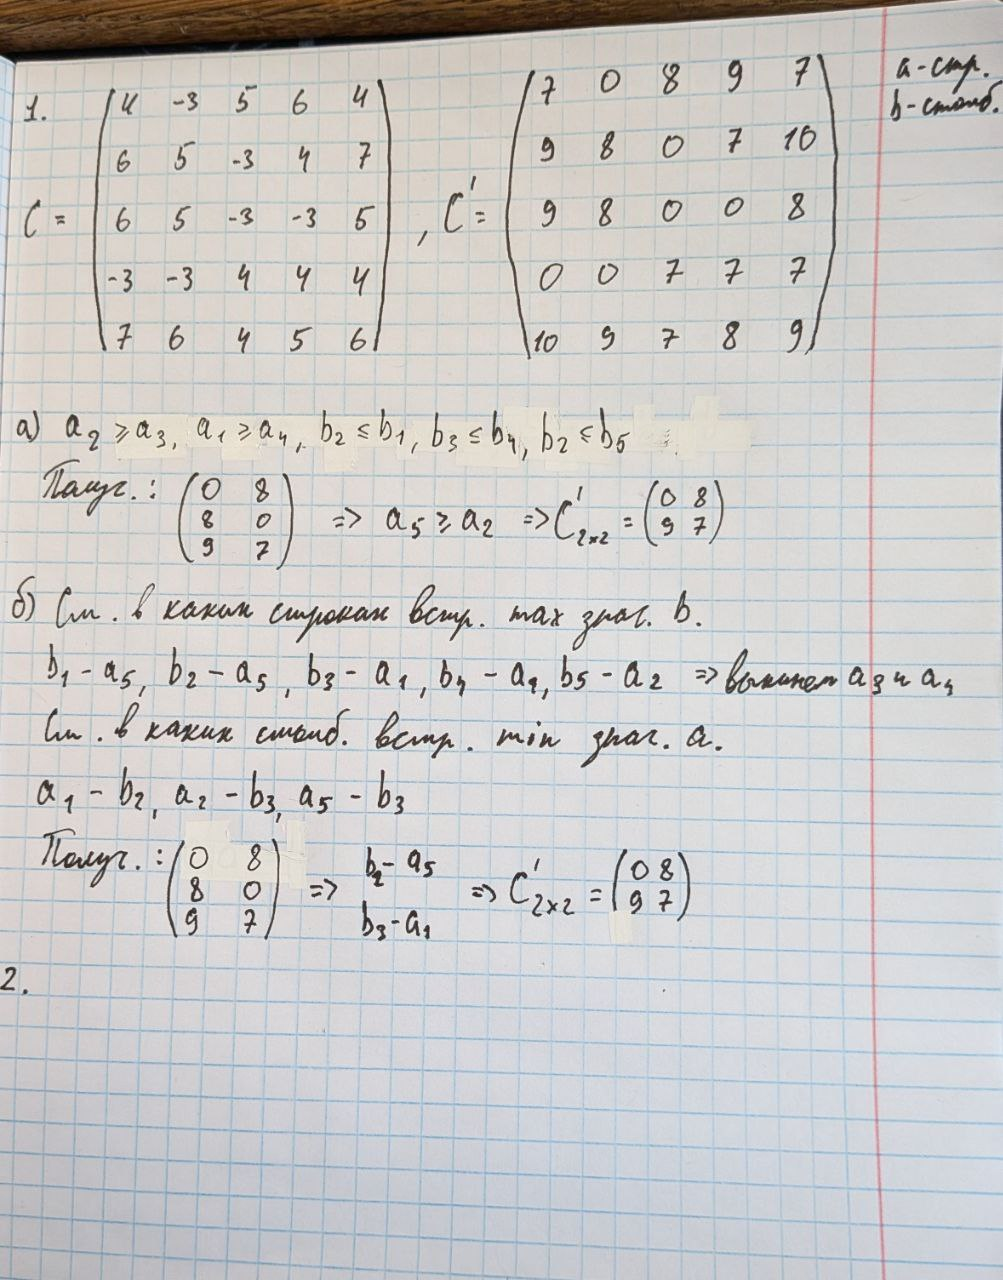 a - стр.
b - столб.
1.
C = ( 4 -3 5 6 4
6 5 -3 4 7
6 5 -3 -3 5
-3 -3 4 4 4
7 6 4 5 6 )
, C' = ( 7 0 8 9 7
9 8 0 7 10
9 8 0 0 8
0 0 7 7 7
10 9 7 8 9 )
а) a₂ ≥ a₃, a₁ ≥ a₄, b₂ ≤ b₁, b₃ ≤ b₄, b₂ ≤ b₅
Получ.: ( 0 8
8 0
9 7 ) => a₅ ≥ a₂ => C'₂ₓ₂ = ( 0 8
9 7 )
б) См. в каких строках встр. max знач. b.
b₁ - a₅, b₂ - a₅, b₃ - a₁, b₄ - a₁, b₅ - a₂ => выкинем a₃ и a₄
См. в каких столб. встр. min знач. a.
a₁ - b₂, a₂ - b₃, a₅ - b₃
Получ.: ( 0 8
8 0
9 7 ) => b₂ - a₅
b₃ - a₁ => C'₂ₓ₂ = ( 0 8
9 7 )
2.